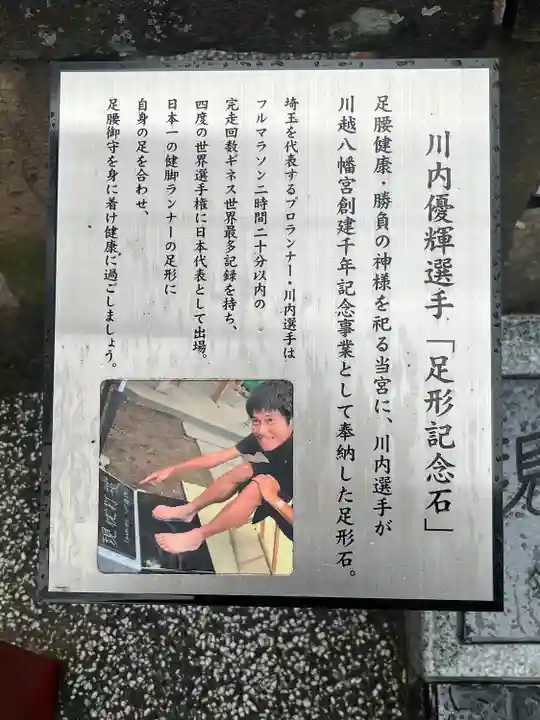 川内優輝選手「足形記念石」
足腰健康・勝負の神様を祀る当宮に、川内選手が
川越八幡宮創建千年記念事業として奉納した足形石。
埼玉を代表するプロランナー・川内選手は
フルマラソン二時間二十分以内の
完走回数ギネス世界最多記録を持ち、
四度の世界選手権に日本代表として出場。
日本一の健脚ランナーの足形に
自身の足を合わせ、
足腰御守を身に着け健康に過ごしましょう。
現